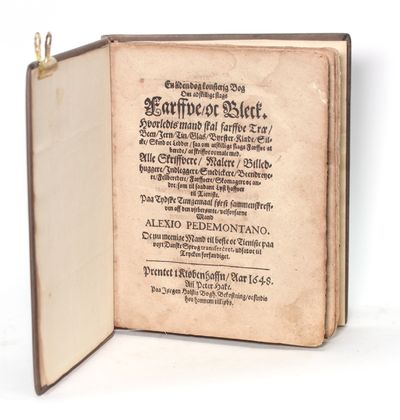 En liden dog konsterig Bog
Om adskillige slags
Farffve/oc Bleck.
Hvorledis mand skal farffve Træ/
Been/Jern/Tin/Glas/Børster Klæde/Sil-
cke/Skind oc Ledder/saa om adskillige slags Farffve at
berede/at skriffve oc male med/
Alle Skriffvere/Malere/Billed-
huggere/Indleggere Snedickere/Beendreye-
re/Feltberedere/Farffvere/Skomagere oc an-
dre som til saadant Lyst haffver
til Tieniste.
Paa Tydske Tungemaal først sammenskreff-
ven aff den vitberømte/velforfarne
Mand
ALEXIO PEDEMONTANO.
Oc nu meenige Mand til beste oc Tieniste paa
vort Danske Sprog transfererit, udsæt oc til
Trycken forfærdiget.
Prentet i Kiøbenhaffn/Aar 1648.
Aff Peter Hake.
Paa Jørgen Holstis Bogh. Bekostning/oc findis
hos hannem tilkiøbs.